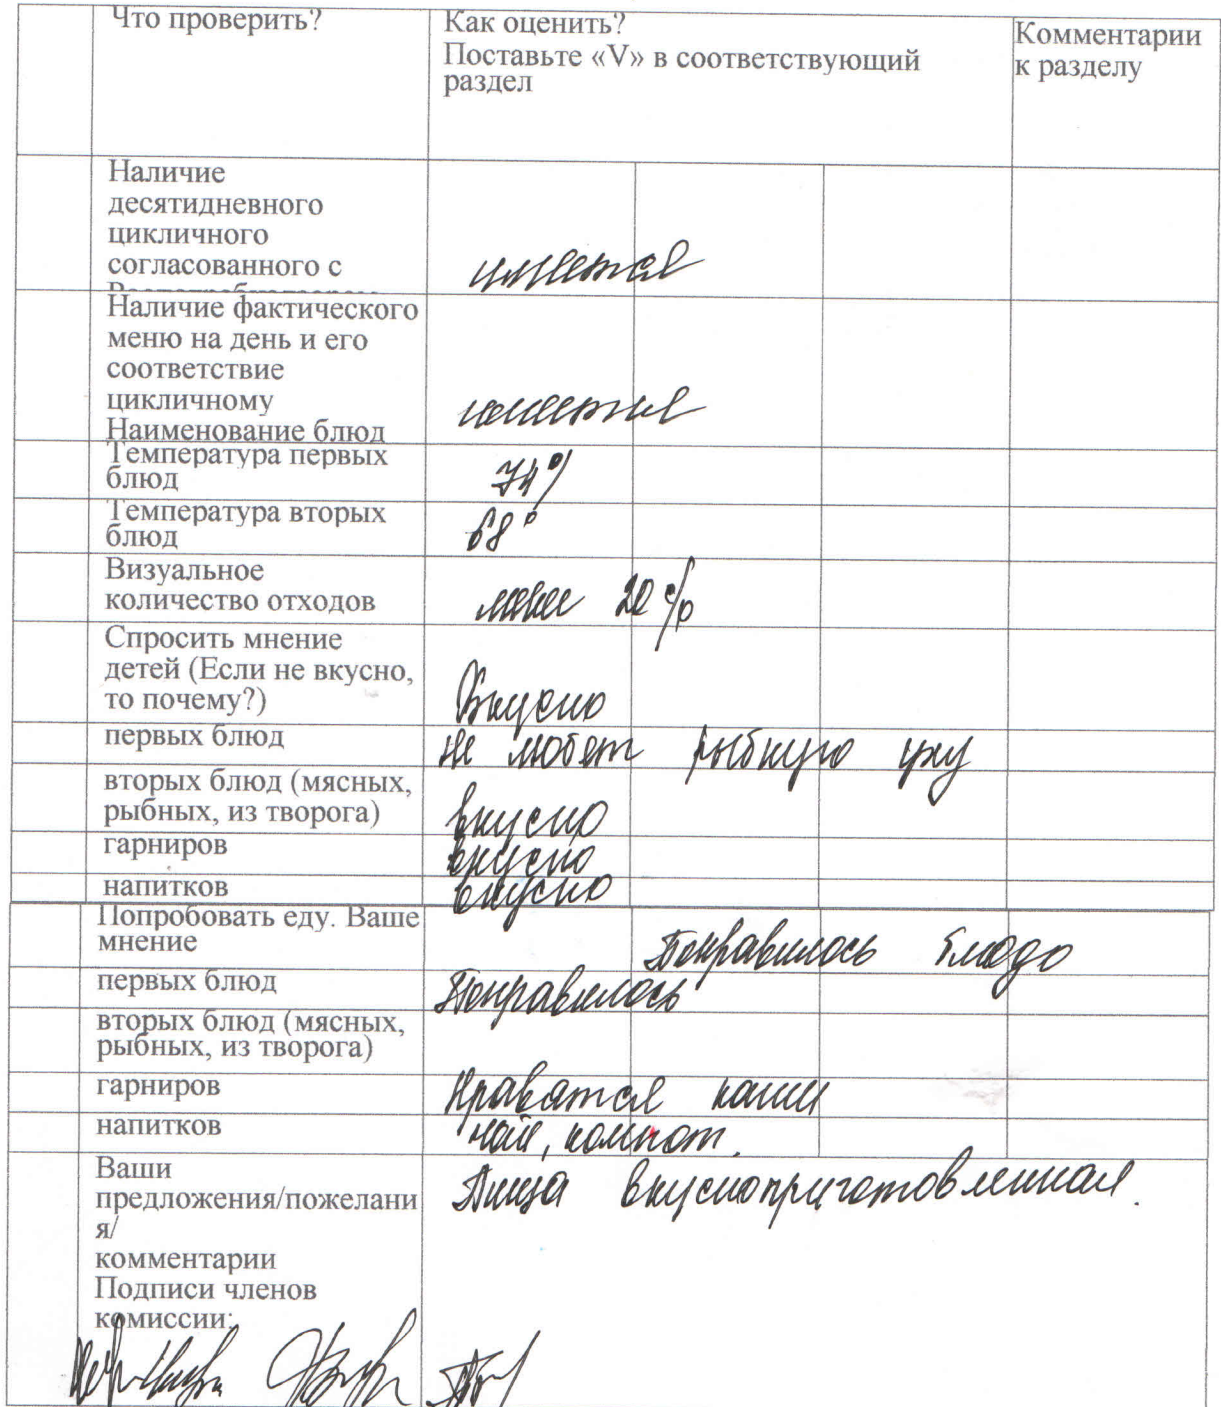 Что проверить?
Как оценить?
Поставьте «V» в соответствующий
раздел
Комментарии
к разделу
Наличие
десятидневного
цикличного
согласованного с
имеется
Наличие фактического
меню на день и его
соответствие
цикличному
Наименование блюд
имеется
Температура первых
блюд
74°
Температура вторых
блюд
68°
Визуальное
количество отходов
20 %
Спросить мнение
детей (Если не вкусно,
то почему?)
Вкусно
первых блюд
не любят рыбную уху
вторых блюд (мясных,
рыбных, из творога)
вкусно
гарниров
вкусно
напитков
вкусно
Попробовать еду. Ваше
мнение
Понравилось блюдо
первых блюд
Понравилось
вторых блюд (мясных,
рыбных, из творога)
гарниров
Нравятся каши
напитков
чай, компот.
Ваши
предложения/пожелани
я/
комментарии
Пища вкуснoприготовленная.
Подписи членов
комиссии: